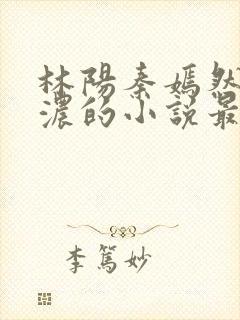 林陽秦嫣然
濃的小說最
李篤妙